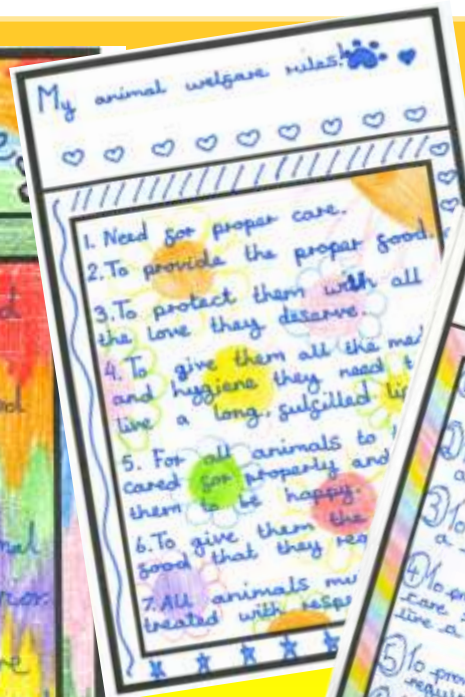 My animal welfare rules!
1. Need for proper care.
2. To provide the proper food.
3. To protect them with all
the love they deserve.
4. To give them all the
and hygiene they need
live a long, fulfilled
5. For all animals to
cared for properly and
them to be happy.
6. To give them the
food that they
7. All animals
treated with
3)To
a
4)To
care
live a
5)To